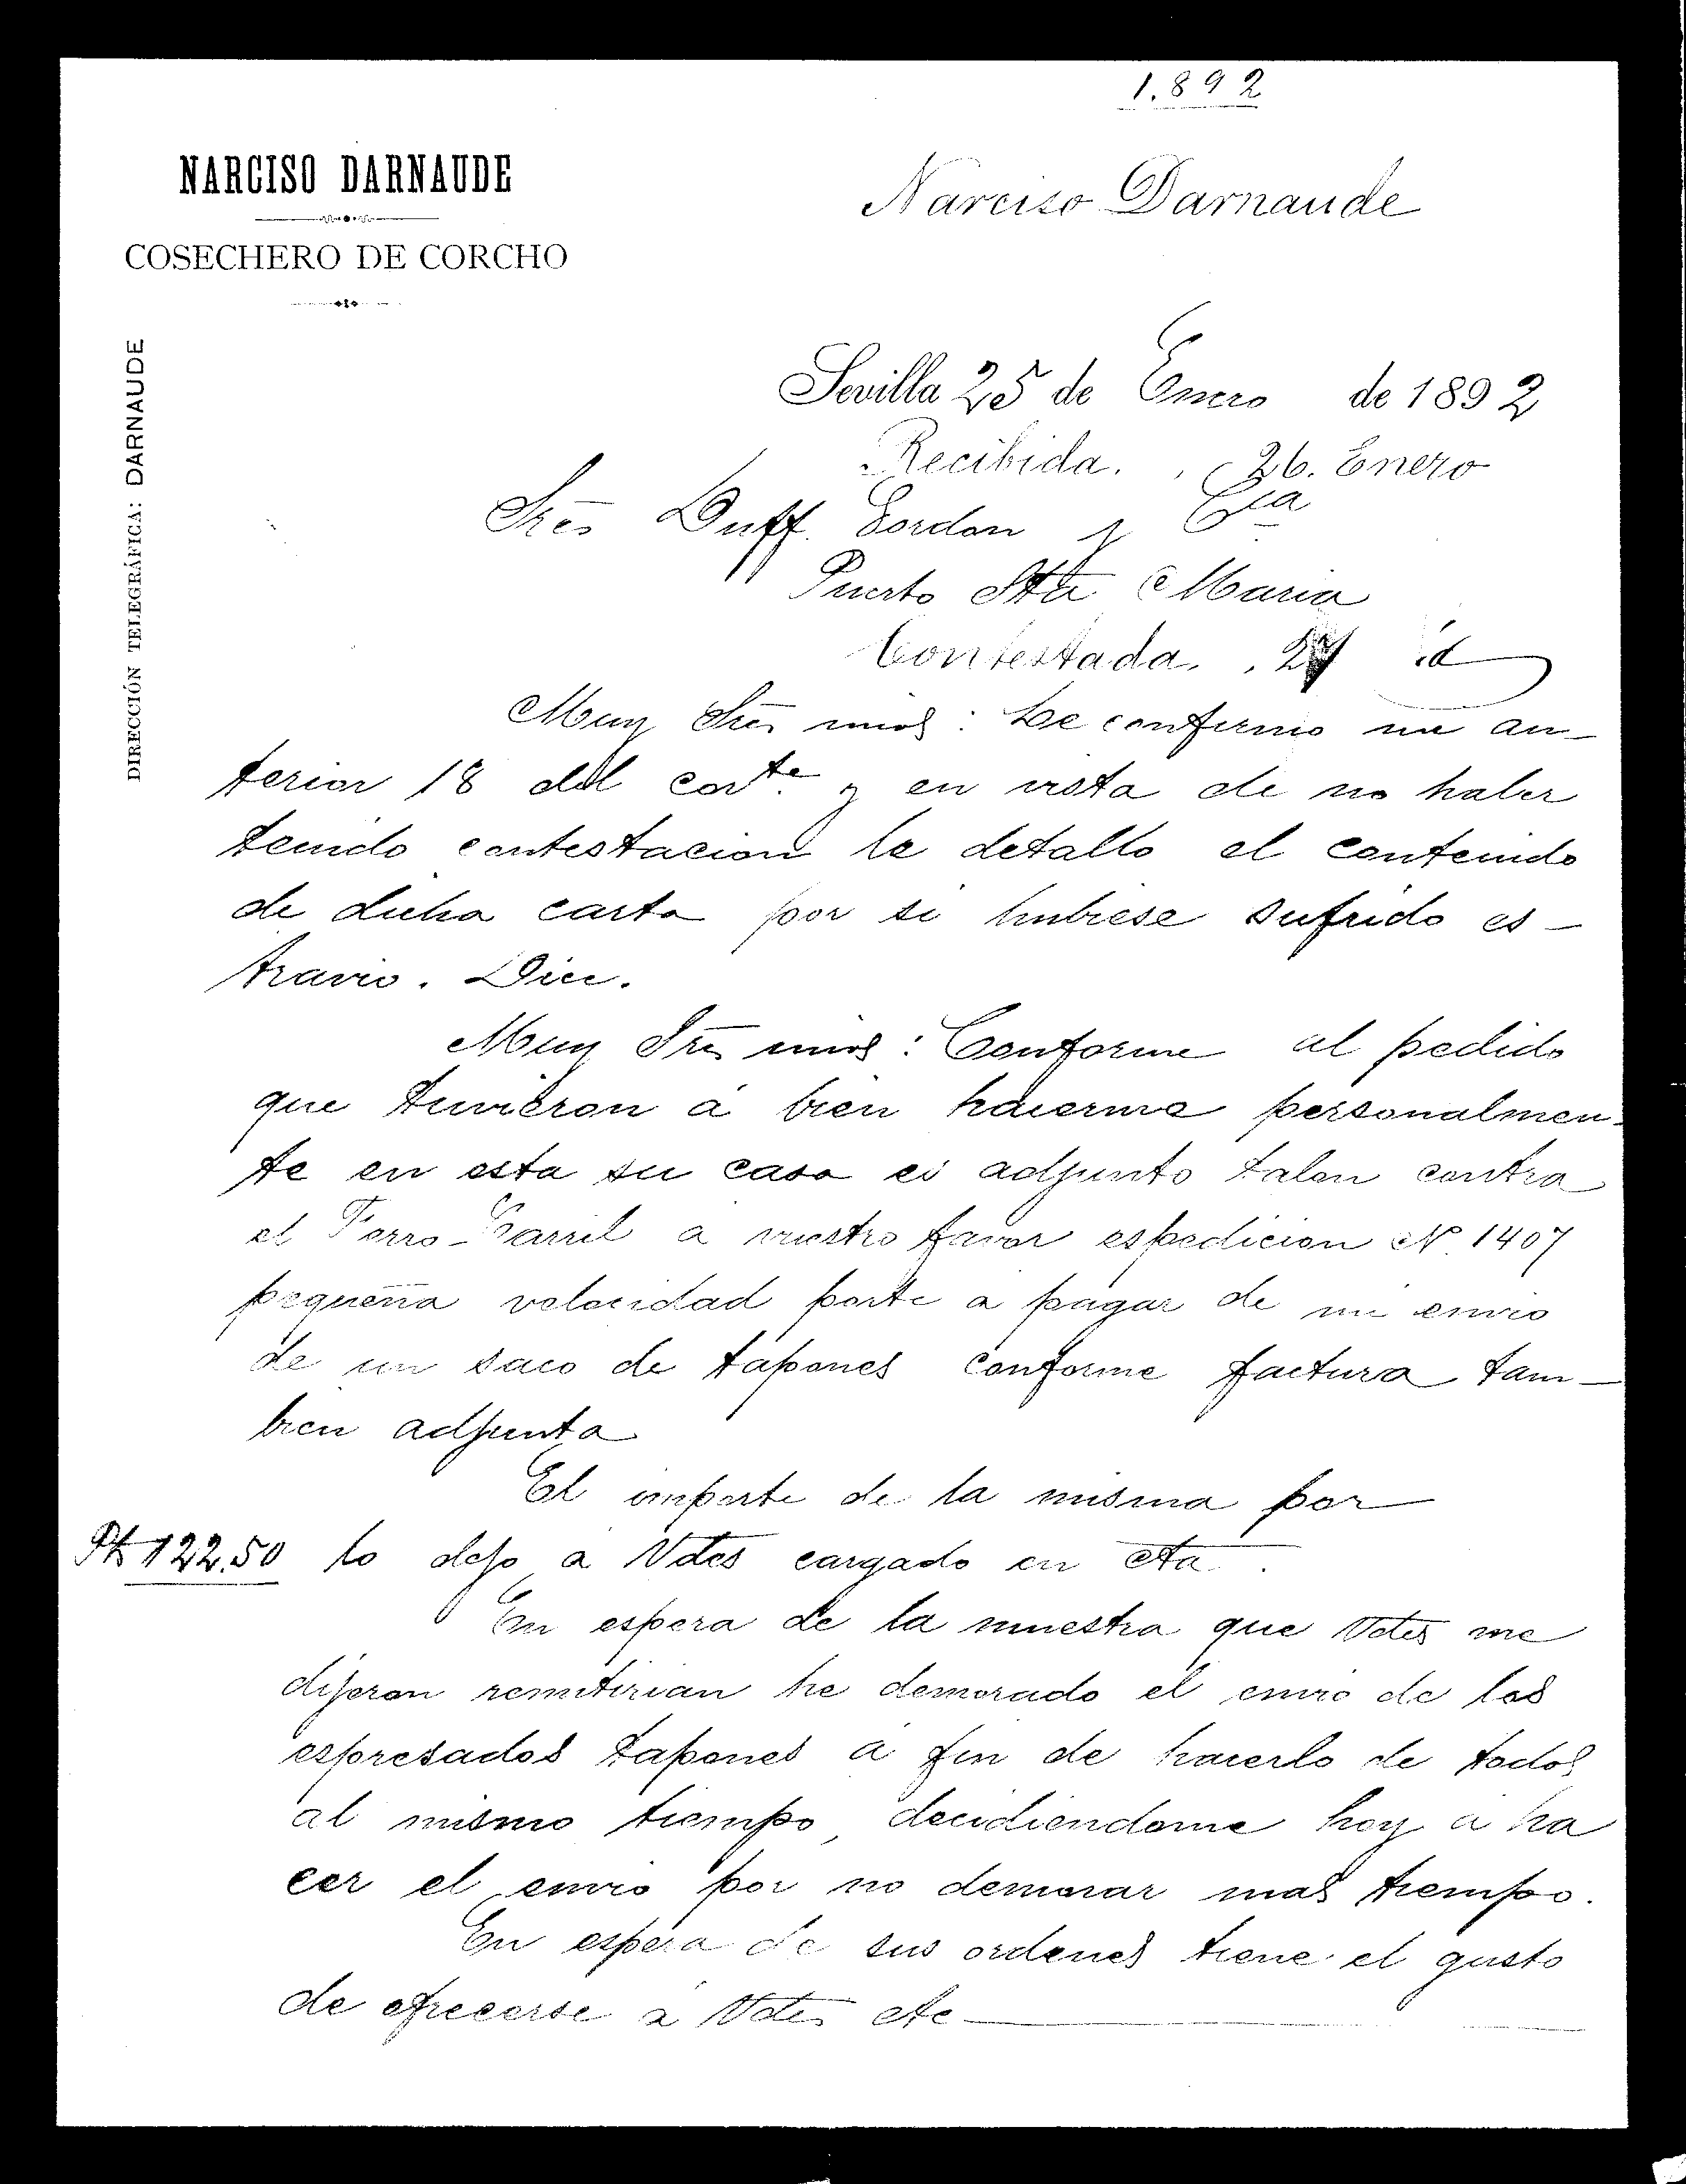 1.892
NARCISO DARNAUDE
Narciso Darnaude
COSECHERO DE CORCHO
DIRECCIÓN TELEGRÁFICA: DARNAUDE
Sevilla 25 de Enero de 1892
Recibida. 26. Enero
Sres Duff. Gordon y Cia
Puerto Sta Maria
Contestada. 27 id
Muy Sres mios: Le confirmo mi an-
terior 18 del corte y en vista de no haber
tenido contestacion le detallo el contenido
de dicha carta por si hubiese sufrido es-
travio. Dice.
Muy Sres mios: Conforme al pedido
que tuvieron á bien hacerme personalmen-
te en esta su casa es adjunto talon contra
el Ferro-Carril a vuestro favor espedicion Nº 1407
pequeña velocidad porte a pagar de mi envio
de un saco de tapones conforme factura tam-
bien adjunta
El importe de la misma por
Pts 122.50 lo dejo a Vdes cargado en cta.
En espera de la muestra que Vdes me
dijeron remitirian he demorado el envio de los
espresados tapones á fin de hacerlo de todos
al mismo tiempo, decidiendome hoy á ha
cer el envio por no demorar mas tiempo.
En espera de sus ordenes tiene el gusto
de ofrecerse a Vdes etc